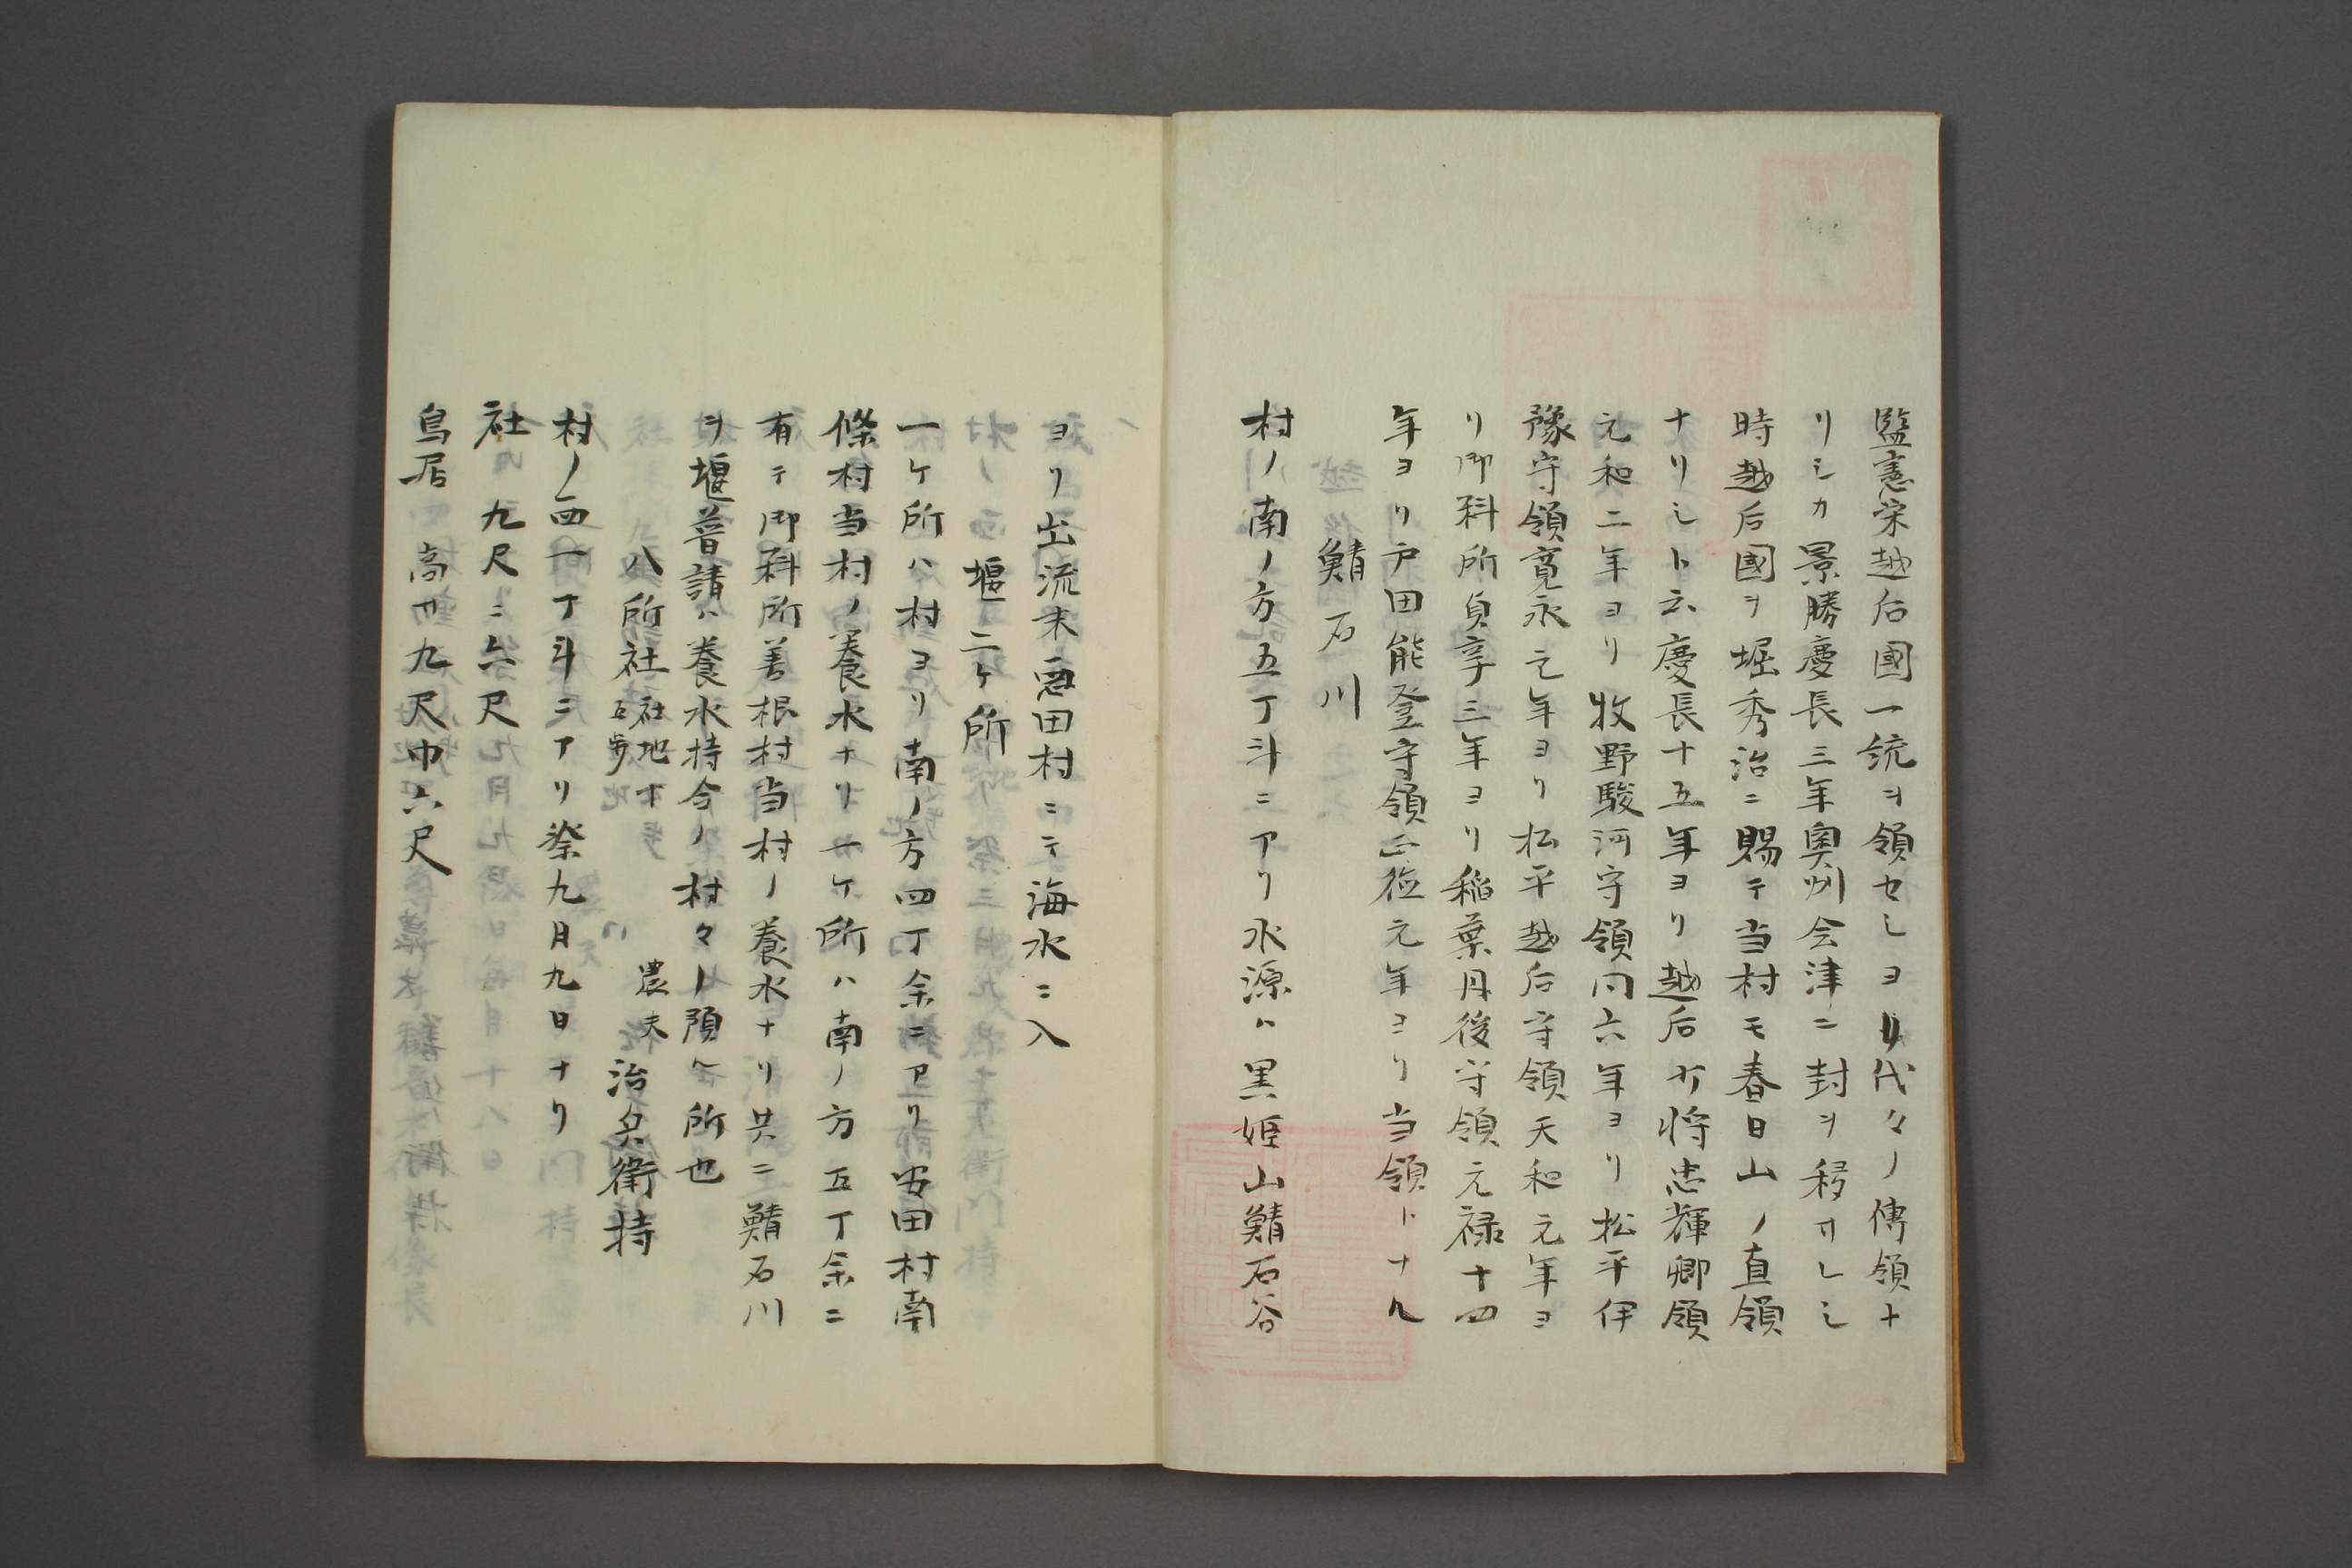 監憲栄越后國一統ヲ領セシヨリ代々ノ傳領ナ
リシカ景勝慶長三年奥州会津ニ封ヲ移サレシ
時越后國ヲ堀秀治ニ賜テ当村モ春日山ノ直領
ナリシト云慶長十五年ヨリ越后少将忠輝卿領
元和二年ヨリ牧野駿河守領同六年ヨリ松平伊
豫守領寛永元年ヨリ松平越后守領天和元年ヨ
リ御料所貞享三年ヨリ稲葉丹後守領元禄十四
年ヨリ戸田能登守領正徳元年ヨリ当領トナル
鯖石川
村ノ南ノ方五丁斗ニアリ水源ハ黒姫山鯖石谷
ヨリ出流末悪田村ニテ海水ニ入
堰二ケ所
一ケ所ハ村ヨリ南ノ方四丁余ニアリ安田村南
條村当村ノ養水ナリ一ケ所ハ南ノ方五丁余ニ
有テ御料所善根村当村ノ養水ナリ共ニ鯖石川
ヲ堰普請ハ養水持合ノ村々ノ預ル所也
八所社 社地十歩 五歩 農夫 治兵衛持
村ノ西一丁斗ニアリ祭九月九日ナリ
社 九尺ニ六尺
鳥居 高サ九尺巾六尺